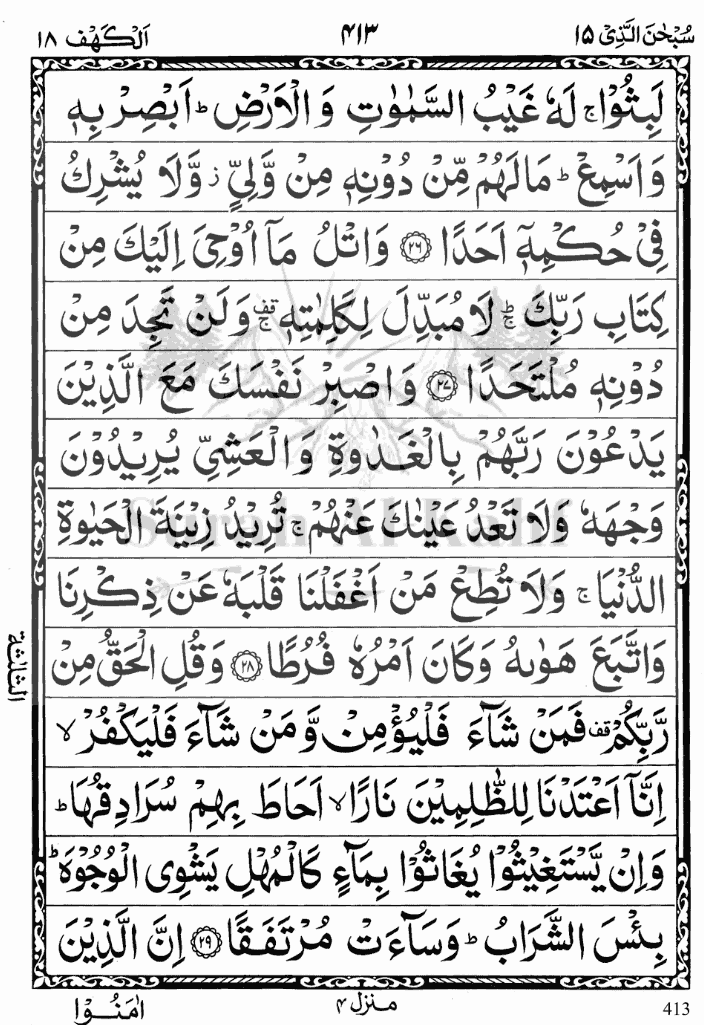 سُبْحٰنَ الَّذِیْ ۱۵
۴۱۳
اَلْكَهْف ۱۸
لَبِثُوْاۚ لَهٗ غَیْبُ السَّمٰوٰتِ وَ الْاَرْضِؕ اَبْصِرْ بِهٖ
وَ اَسْمِعْؕ مَا لَهُمْ مِّنْ دُوْنِهٖ مِنْ وَّلِیٍّ٘ وَّ لَا یُشْرِكُ
فِیْ حُكْمِهٖۤ اَحَدًا ۲۶ وَ اتْلُ مَاۤ اُوْحِیَ اِلَیْكَ مِنْ
كِتَابِ رَبِّكَ ؕۚ لَا مُبَدِّلَ لِكَلِمٰتِهٖ قف ۚ وَ لَنْ تَجِدَ مِنْ
دُوْنِهٖ مُلْتَحَدًا ۲۷ وَ اصْبِرْ نَفْسَكَ مَعَ الَّذِیْنَ
یَدْعُوْنَ رَبَّهُمْ بِالْغَدٰوةِ وَ الْعَشِیِّ یُرِیْدُوْنَ
وَجْهَهٗ وَ لَا تَعْدُ عَیْنٰكَ عَنْهُمْۚ تُرِیْدُ زِیْنَةَ الْحَیٰوةِ
الدُّنْیَاۚ وَ لَا تُطِعْ مَنْ اَغْفَلْنَا قَلْبَهٗ عَنْ ذِكْرِنَا
وَ اتَّبَعَ هَوٰىهُ وَ كَانَ اَمْرُهٗ فُرُطًا ۲۸ وَ قُلِ الْحَقُّ مِنْ
رَّبِّكُمْ قف فَمَنْ شَآءَ فَلْیُؤْمِنْ وَّ مَنْ شَآءَ فَلْیَكْفُرْ ۙ
اِنَّاۤ اَعْتَدْنَا لِلظّٰلِمِیْنَ نَارًا ۙ اَحَاطَ بِهِمْ سُرَادِقُهَاؕ
وَ اِنْ یَّسْتَغِیْثُوْا یُغَاثُوْا بِمَآءٍ كَالْمُهْلِ یَشْوِی الْوُجُوْهَؕ
بِئْسَ الشَّرَابُؕ وَ سَآءَتْ مُرْتَفَقًا ۲۹ اِنَّ الَّذِیْنَ
الثلٰثة
اٰمَنُوْا
منزل ۴
413
Surah Al Kahf